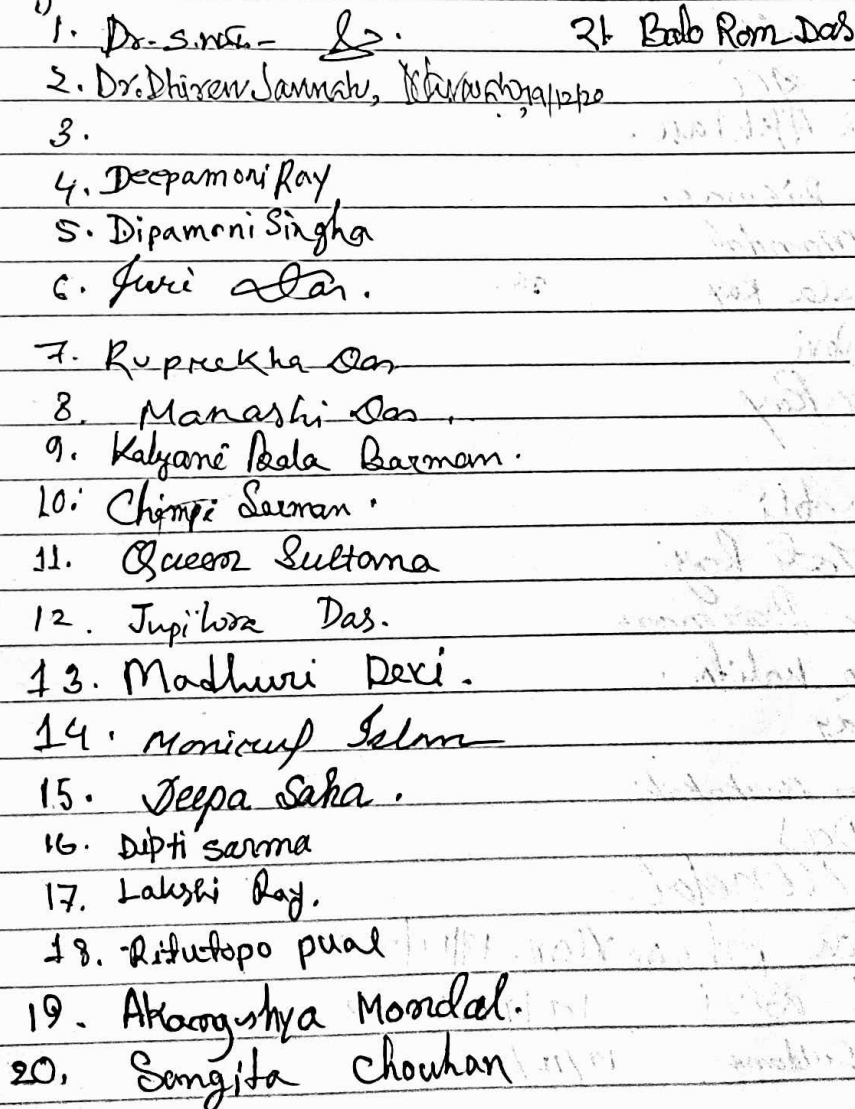 1. Dr. S. 
2. Dr. Dhiren 19/12/20
3.
4. Deepamoni Ray
5. Dipamoni Singha
6. Juri Das.
7. Ruprekha Das
8. Manashi Das.
9. Kalyani Bala Barman.
10. Chimpi Sarman.
11. Queen Sultana
12. Jupitora Das.
13. Madhuri Devi.
14. Monirul Islam
15. Deepa Saha.
16. Dipti Sarma
17. Lakshi Ray.
18. Ritutopo pual
19. Akangshya Mondal.
20. Sangita Chouhan
21. Balo Rom Das